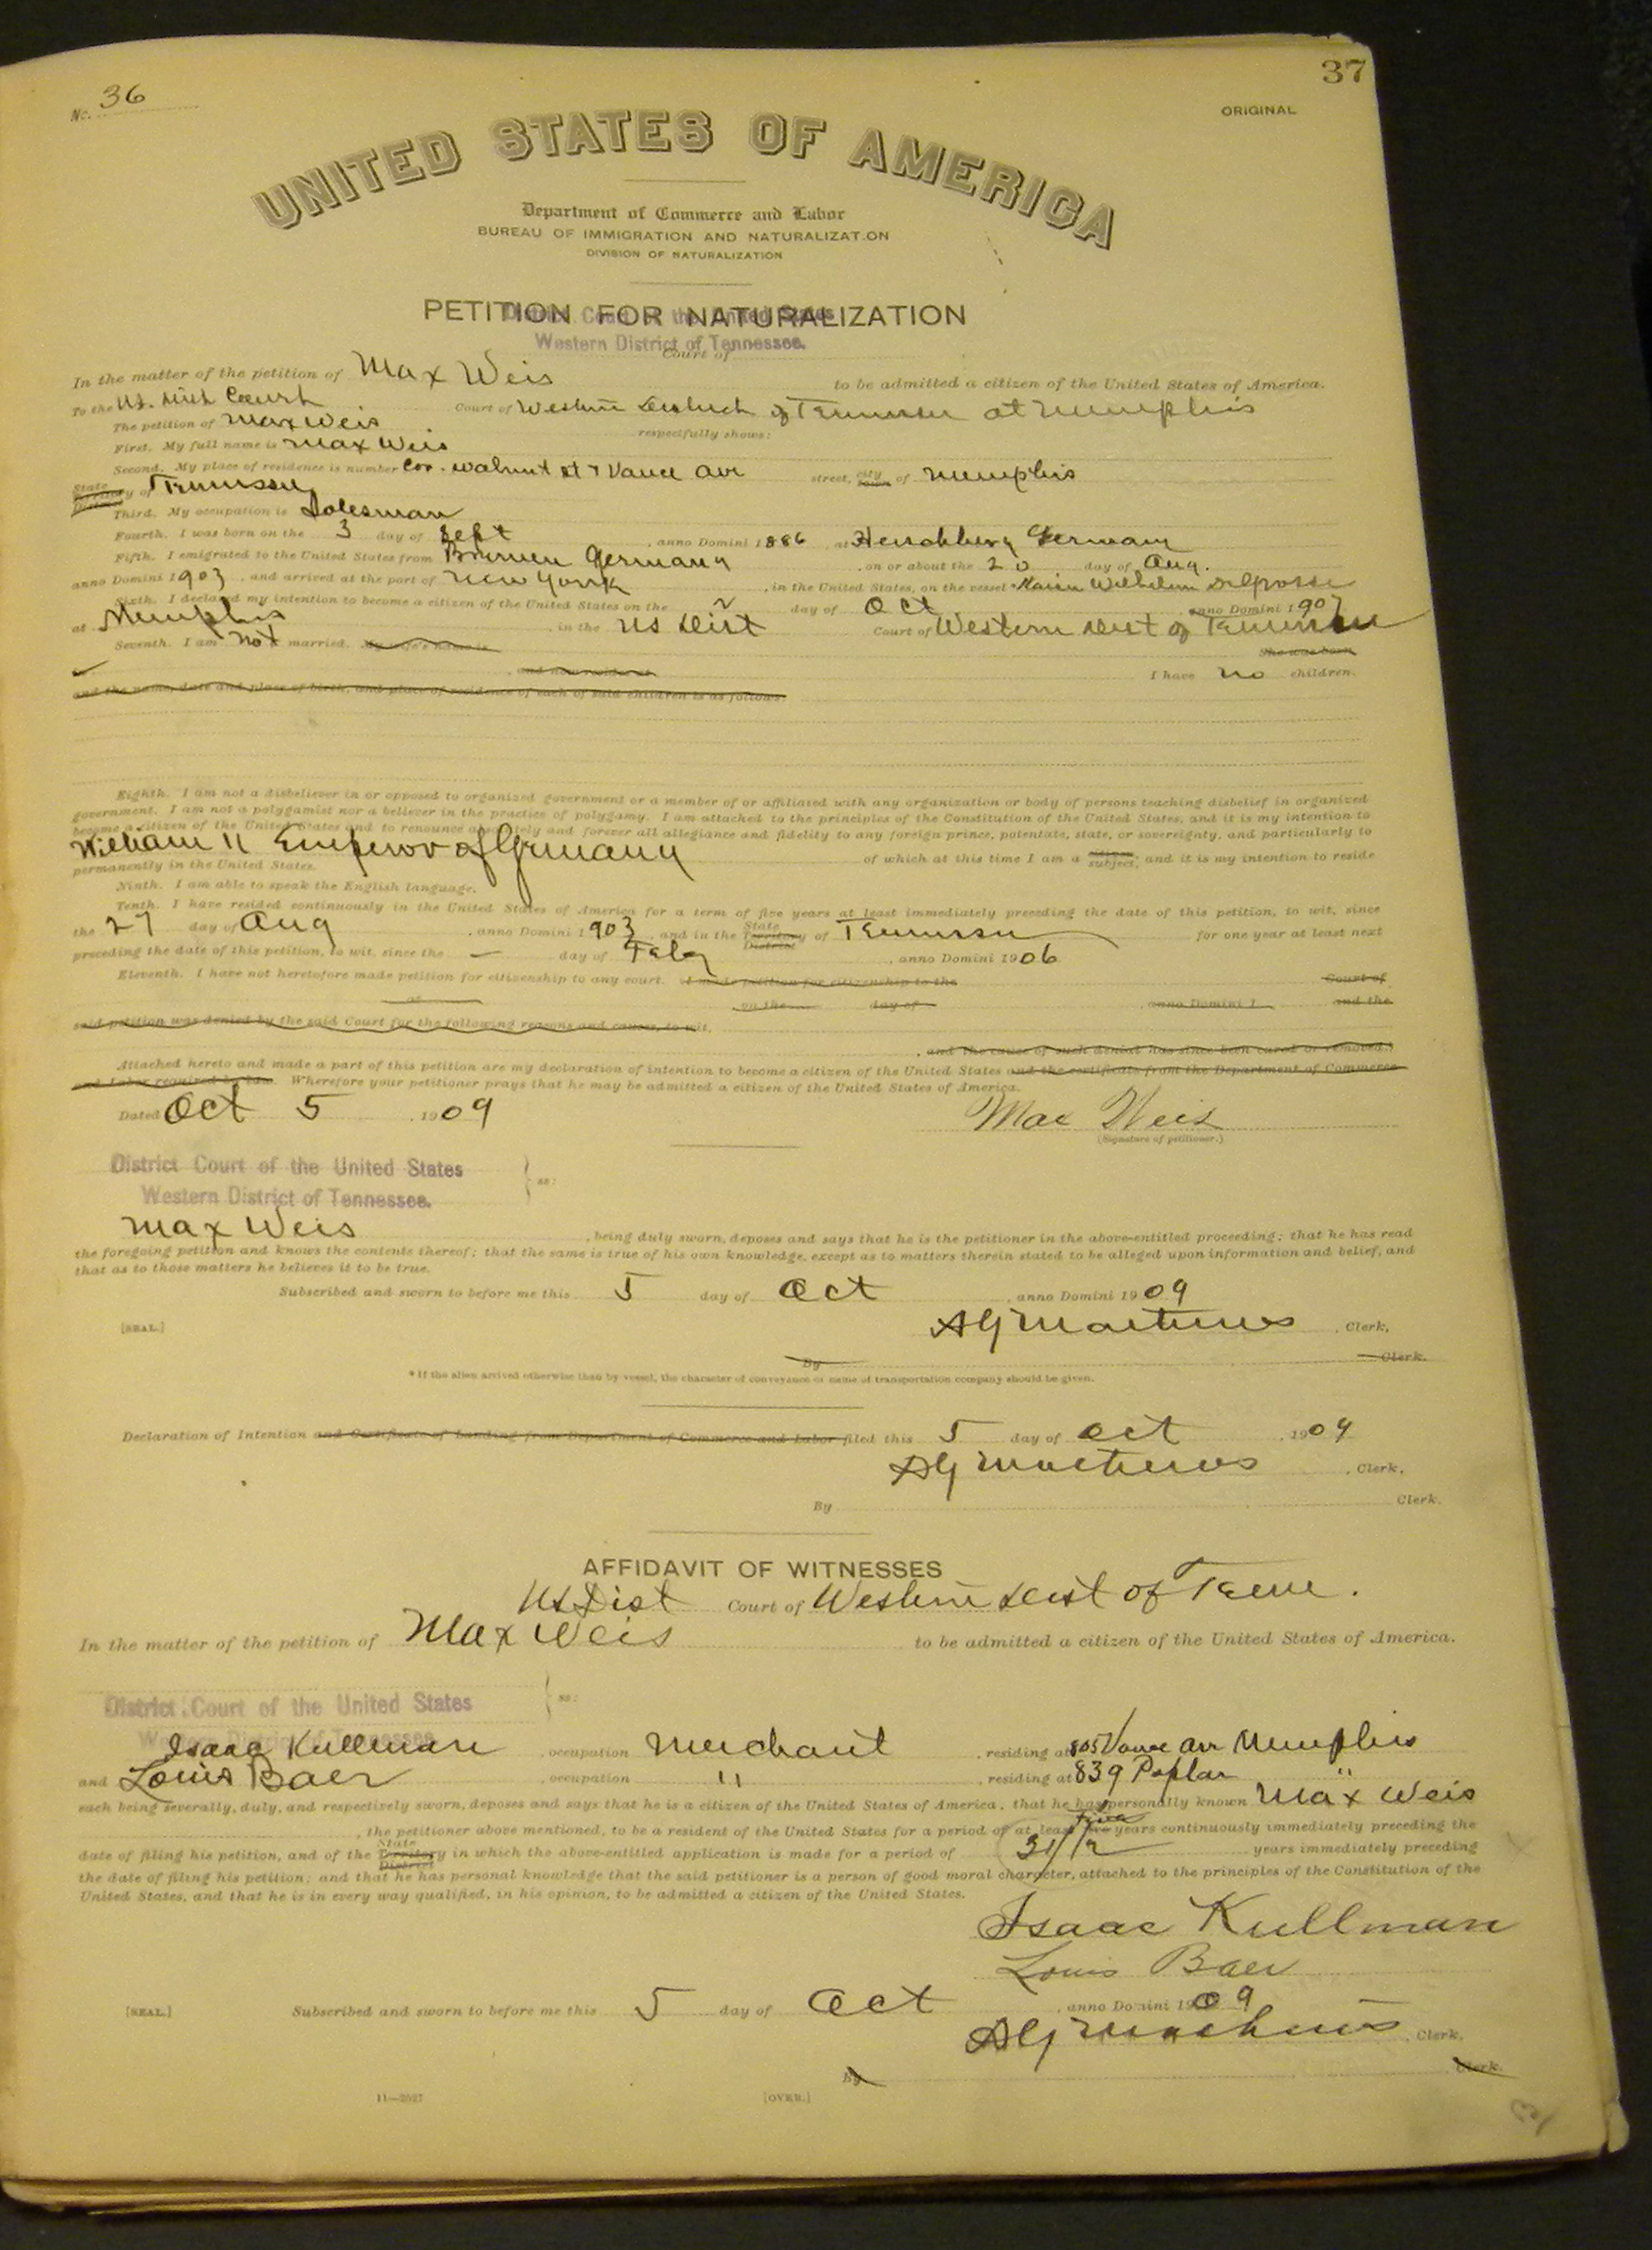 37
No. 36
ORIGINAL
UNITED STATES OF AMERICA
Department of Commerce and Labor
BUREAU OF IMMIGRATION AND NATURALIZATION
DIVISION OF NATURALIZATION
PETITION FOR NATURALIZATION
District Court of the United States
Western District of Tennessee.
Court of
In the matter of the petition of Max Weis to be admitted a citizen of the United States of America.
To the U.S. Dist Court Court of Western District of Tennessee at Memphis
The petition of Max Weis respectfully shows:
First. My full name is Max Weis
Second. My place of residence is number Cor. Walnut st & Vance Ave street, city of Memphis
State Territory District of Tennessee
Third. My occupation is Salesman
Fourth. I was born on the 3 day of Sept, anno Domini 1886, at Herschberg Germany
Fifth. I emigrated to the United States from Bremen Germany, on or about the 20 day of Aug.
anno Domini 1903, and arrived at the port of New York, in the United States, on the vessel *Kaiser Wilhelm
Sixth. I declared my intention to become a citizen of the United States on the 2 day of Oct anno Domini 1907
at Memphis in the US Dist Court of Western Dist of Tennessee
Seventh. I am not married. My wife's name is She was born
and now resides at I have no children.
and the name, date and place of birth, and place of residence of each of said children is as follows:
Eighth. I am not a disbeliever in or opposed to organized government or a member of or affiliated with any organization or body of persons teaching disbelief in organized
government. I am not a polygamist nor a believer in the practice of polygamy. I am attached to the principles of the Constitution of the United States, and it is my intention to
become a citizen of the United States and to renounce absolutely and forever all allegiance and fidelity to any foreign prince, potentate, state, or sovereignty, and particularly to
William II Emperor of Germany of which at this time I am a citizen subject, and it is my intention to reside
permanently in the United States.
Ninth. I am able to speak the English language.
Tenth. I have resided continuously in the United States of America for a term of five years at least immediately preceding the date of this petition, to wit, since
the 27 day of Aug, anno Domini 1903, and in the State Territory District of Tennessee for one year at least next
preceding the date of this petition, to wit, since the — day of Feby, anno Domini 1906
Eleventh. I have not heretofore made petition for citizenship to any court. I made petition for citizenship to the Court of
at on the day of, anno Domini 1 and the
said petition was denied by the said Court for the following reasons and causes, to wit,
, and the cause of such denial has since been cured or removed.)
Attached hereto and made a part of this petition are my declaration of intention to become a citizen of the United States and the certificate from the Department of Commerce
and Labor required by law. Wherefore your petitioner prays that he may be admitted a citizen of the United States of America.
Dated Oct 5, 1909 Max Weis
(Signature of petitioner.)
District Court of the United States
Western District of Tennessee. } ss:
Max Weis, being duly sworn, deposes and says that he is the petitioner in the above-entitled proceeding; that he has read
the foregoing petition and knows the contents thereof; that the same is true of his own knowledge, except as to matters therein stated to be alleged upon information and belief, and
that as to those matters he believes it to be true.
Subscribed and sworn to before me this 5 day of Oct, anno Domini 1909
[SEAL.] AG Matthews, Clerk,
By Clerk.
* If the alien arrived otherwise than by vessel, the character of conveyance or name of transportation company should be given.
Declaration of Intention and Certificate of Landing from Department of Commerce and Labor filed this 5 day of Oct, 1909
AG Matthews, Clerk.
By Clerk.
AFFIDAVIT OF WITNESSES
US Dist Court of Western Dist of Tenn.
In the matter of the petition of Max Weis to be admitted a citizen of the United States of America.
District Court of the United States } ss:
Western District of Tennessee
Isaac Kullman, occupation Merchant, residing at 805 Vance Ave Memphis
and Louis Baer, occupation ", residing at 839 Poplar "
each being severally, duly, and respectively sworn, deposes and says that he is a citizen of the United States of America, that he has personally known Max Weis
, the petitioner above mentioned, to be a resident of the United States for a period of at least five years continuously immediately preceding the
date of filing his petition, and of the State Territory District in which the above-entitled application is made for a period of 3 1/2 years immediately preceding
the date of filing his petition; and that he has personal knowledge that the said petitioner is a person of good moral character, attached to the principles of the Constitution of the
United States, and that he is in every way qualified, in his opinion, to be admitted a citizen of the United States.
Isaac Kullman
Louis Baer
[SEAL.] Subscribed and sworn to before me this 5 day of Oct, anno Domini 1909
AG Matthews, Clerk.
By Clerk.
11—2527 [OVER.]